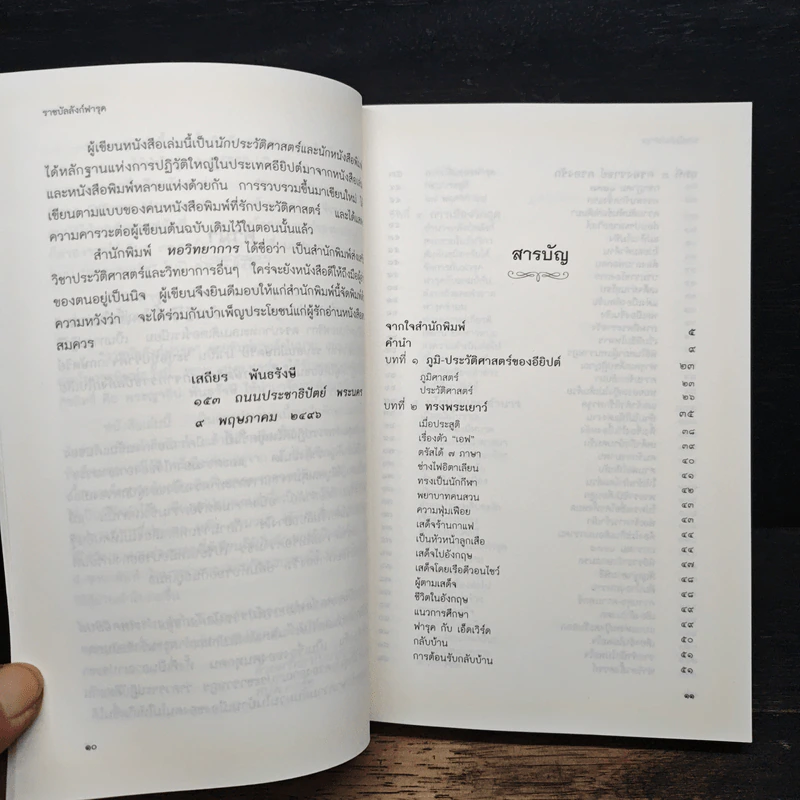 ราชบัลลังก์ฟารุค
ผู้เขียนหนังสือเล่มนี้เป็นนักประวัติศาสตร์และนักหนังสือพิมพ์
ได้หลักฐานแห่งการปฏิวัติใหญ่ในประเทศอียิปต์มาจากหนังสือ
และหนังสือพิมพ์หลายแห่งด้วยกัน การรวบรวมขึ้นมาเขียนใหม่
เขียนตามแบบของคนหนังสือพิมพ์ที่รักประวัติศาสตร์ และได้
ความคารวะต่อผู้เขียนต้นฉบับเดิมไว้ในตอนนั้นแล้ว
สำนักพิมพ์ หอวิทยาการ ได้ชื่อว่า เป็นสำนักพิมพ์
วิชาประวัติศาสตร์และวิทยาการอื่นๆ ใคร่จะยังหนังสือดีให้ถึงมือ
ของตนอยู่เป็นนิจ ผู้เขียนจึงยินดีมอบให้แก่สำนักพิมพ์นี้จัดพิมพ์
ความหวังว่า จะได้ร่วมกันบำเพ็ญประโยชน์แก่ผู้รักอ่านหนังสือ
สมควร
เสถียร พันธรังษี
๑๕๓ ถนนประชาธิปัตย์ พระนคร
๙ พฤษภาคม ๒๔๙๖
๑๐
สารบัญ
จากใจสำนักพิมพ์ ๕
คำนำ ๙
บทที่ ๑ ภูมิ-ประวัติศาสตร์ของอียิปต์ ๒๓
ภูมิศาสตร์ ๒๓
ประวัติศาสตร์ ๒๖
บทที่ ๒ ทรงพระเยาว์ ๓๕
เมื่อประสูติ ๓๘
เรื่องตัว "เอฟ" ๓๙
ตรัสได้ ๗ ภาษา ๔๐
ช่างไฟอิตาเลียน ๔๑
ทรงเป็นนักกีฬา ๔๒
พยาบาทคนสวน ๔๒
ความฟุ่มเฟือย ๔๓
เสด็จร้านกาแฟ ๔๔
เป็นหัวหน้าลูกเสือ ๔๔
เสด็จไปอังกฤษ ๔๗
เสด็จโดยเรือดีวอนไชว์ ๔๘
ผู้ตามเสด็จ ๔๘
ชีวิตในอังกฤษ ๔๙
แนวการศึกษา ๔๙
ฟารุค กับ เอ็ดเวิร์ด ๕๐
กลับบ้าน ๕๑
การต้อนรับกลับบ้าน ๕๑
๑๑